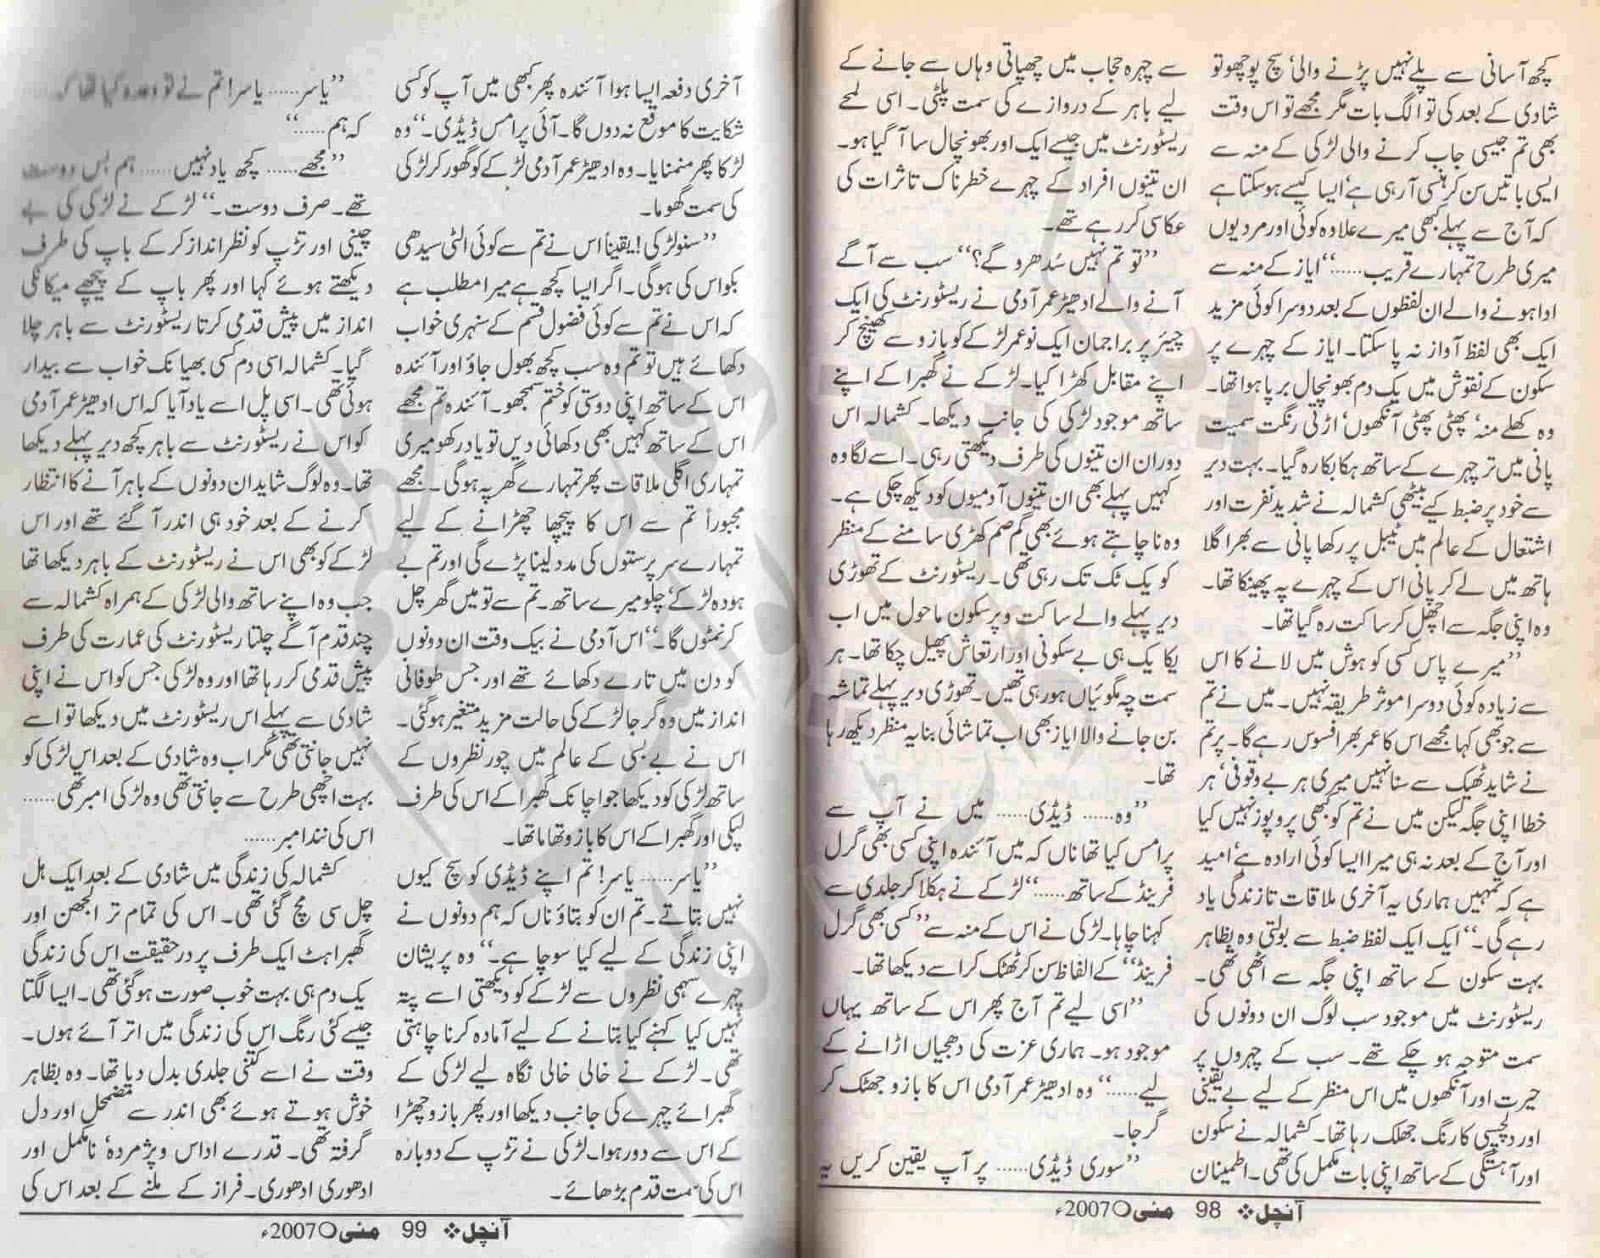 کچھ آسانی سے پلے نہیں پڑنے والی‘ سچ پوچھو تو
شادی کے بعد کی تو الگ بات مگر مجھے تو اس وقت
بھی تم جیسی جاب کرنے والی لڑکی کے منہ سے
ایسی باتیں سن کر ہنسی آ رہی ہے‘ ایسا کیسے ہوسکتا ہے
کہ آج سے پہلے کبھی میرے علاوہ کوئی اور مرد یوں
میری طرح تمہارے قریب......‘‘ ایاز کے منہ سے
ادا ہونے والے ان لفظوں کے بعد دوسرا کوئی مزید
ایک بھی لفظ آواز نہ پا سکتا۔ ایاز کے چہرے پر
سکون کے نقوش میں یک دم بھونچال برپا ہوا تھا۔
وہ کھلے منہ‘ پھٹی پھٹی آنکھوں‘ اڑتی رنگت سمیت
پانی میں تر چہرے کے ساتھ ہکا بکا رہ گیا۔ بہت دیر
سے خود پر ضبط کیے بیٹھی کشمالہ نے شدید نفرت اور
اشتعال کے عالم میں ٹیبل پر رکھا پانی سے بھرا گلا
ہاتھ میں لے کر پانی اس کے چہرے پہ پھینکا تھا۔
وہ اپنی جگہ سے اچھل کر ساکت رہ گیا تھا۔
’’میرے پاس کسی کو ہوش میں لانے کا اس
سے زیادہ کوئی دوسرا موثر طریقہ نہیں۔ میں نے تم
سے جو بھی کہا مجھے اس کا عمر بھر افسوس رہے گا۔ پر تم
نے شاید ٹھیک سے سنا نہیں میری ہر بے وقوفی‘ ہر
خطا اپنی جگہ لیکن میں نے تم کو کبھی پروپوز نہیں کیا
اور آج کے بعد نہ ہی میرا ایسا کوئی ارادہ ہے‘ امید
ہے کہ تمہیں ہماری یہ آخری ملاقات تا زندگی یاد
رہے گی۔‘‘ ایک ایک لفظ ضبط سے بولتی وہ بظاہر
بہت سکون کے ساتھ اپنی جگہ سے اٹھی تھی۔
ریسٹورنٹ میں موجود سب لوگ ان دونوں کی
سمت متوجہ ہو چکے تھے۔ سب کے چہروں پر
حیرت اور آنکھوں میں اس منظر کے لیے بے یقینی
اور دلچسپی کا رنگ جھلک رہا تھا۔ کشمالہ نے سکون
اور آہستگی کے ساتھ اپنی بات مکمل کی تھی۔ اطمینان
سے چہرہ حجاب میں چھپاتی وہاں سے جانے کے
لیے باہر کے دروازے کی سمت پلٹی۔ اسی لمحے
ریسٹورنٹ میں جیسے ایک اور بھونچال سا آ گیا ہو۔
ان تینوں افراد کے چہرے خطرناک تاثرات کی
عکاسی کر رہے تھے۔
’’تو تم نہیں سُدھرو گے؟‘‘ سب سے آگے
آنے والے ادھیڑ عمر آدمی نے ریسٹورنٹ کی ایک
چیئر پر براجمان ایک نو عمر لڑکے کو بازو سے کھینچ کر
اپنے مقابل کھڑا کیا۔ لڑکے نے گھبرا کے اپنے
ساتھ موجود لڑکی کی جانب دیکھا۔ کشمالہ اس
دوران ان تینوں کی طرف دیکھتی رہی۔ اسے لگا وہ
کہیں پہلے بھی ان تینوں آدمیوں کو دیکھ چکی ہے۔
وہ نا چاہتے ہوئے بھی گم صم کھڑی سامنے کے منظر
کو یک ٹک تک رہی تھی۔ ریسٹورنٹ کے تھوڑی
دیر پہلے والے ساکت و پرسکون ماحول میں اب
یکا یک ہی بے سکونی اور ارتعاش پھیل چکا تھا۔ ہر
سمت چہ مگوئیاں ہو رہی تھیں۔ تھوڑی دیر پہلے تماشہ
بن جانے والا ایاز بھی اب تماشائی بنا یہ منظر دیکھ رہا
تھا۔
’’وہ...... ڈیڈی...... میں نے آپ سے
پرامس کیا تھا ناں کہ میں آئندہ اپنی کسی بھی گرل
فرینڈ کے ساتھ......‘‘ لڑکے نے ہکلا کر جلدی سے
کہنا چاہا۔ لڑکی نے اس کے منہ سے ’’کسی بھی گرل
فرینڈ‘‘ کے الفاظ سن کر ٹھٹک کر اسے دیکھا تھا۔
’’اسی لیے تم آج پھر اس کے ساتھ یہاں
موجود ہو۔ ہماری عزت کی دھجیاں اڑانے کے
لیے......‘‘ وہ ادھیڑ عمر آدمی اس کا بازو جھٹک کر
گرجا۔
’’سوری ڈیڈی...... پر آپ یقین کریں یہ
آنچل ❖ 98 مئی ○ 2007ء
آخری دفعہ ایسا ہوا آئندہ پھر کبھی میں آپ کو کسی
شکایت کا موقع نہ دوں گا۔ آئی پرامس ڈیڈی۔‘‘ وہ
لڑکا پھر منمنایا۔ وہ ادھیڑ عمر آدمی لڑکے کو گھور کر لڑکی
کی سمت گھوما۔
’’سنو لڑکی! یقیناً اس نے تم سے کوئی الٹی سیدھی
بکواس کی ہوگی۔ اگر ایسا کچھ ہے میرا مطلب ہے
کہ اس نے تم سے کوئی فضول قسم کے سنہری خواب
دکھائے ہیں تو تم وہ سب کچھ بھول جاؤ اور آئندہ
اس کے ساتھ اپنی دوستی کو ختم سمجھو۔ آئندہ تم مجھے
اس کے ساتھ کہیں بھی دکھائی دیں تو یاد رکھو میری
تمہاری اگلی ملاقات پھر تمہارے گھر پہ ہوگی۔ مجھے
مجبوراً تم سے اس کا پیچھا چھڑانے کے لیے
تمہارے سرپرستوں کی مدد لینا پڑے گی اور تم بے
ہودہ لڑکے‘ چلو میرے ساتھ۔ تم سے تو میں گھر چل
کر نمٹوں گا۔‘‘ اس آدمی نے بیک وقت ان دونوں
کو دن میں تارے دکھائے تھے اور جس طوفانی
انداز میں وہ گرجا لڑکے کی حالت مزید متغیر ہوگئی۔
اس نے بے بسی کے عالم میں چور نظروں کے
ساتھ لڑکی کو دیکھا جو اچانک گھبرا کے اس کی طرف
لپکی اور گھبرا کے اس کا بازو تھاما تھا۔
’’یاسر...... یاسر! تم اپنے ڈیڈی کو سچ کیوں
نہیں بتاتے۔ تم ان کو بتاؤ ناں کہ ہم دونوں نے
اپنی زندگی کے لیے کیا سوچا ہے۔‘‘ وہ پریشان
چہرے سہمی نظروں سے لڑکے کو دیکھتی اسے پتہ
نہیں کیا کہنے کیا بتانے کے لیے آمادہ کرنا چاہتی
تھی۔ لڑکے نے خالی خالی نگاہ لیے لڑکی کے
گھبرائے چہرے کی جانب دیکھا اور پھر بازو چھڑا
کے اس سے دور ہوا۔ لڑکی نے تڑپ کے دوبارہ
اس کی سمت قدم بڑھائے۔
’’یاسر...... یاسر! تم نے تو وعدہ کیا تھا کہ
کہ ہم......‘‘
’’مجھے...... کچھ یاد نہیں...... ہم بس دوست
تھے۔ صرف دوست۔‘‘ لڑکے نے لڑکی کی بے
چینی اور تڑپ کو نظر انداز کر کے باپ کی طرف
دیکھتے ہوئے کہا اور پھر باپ کے پیچھے میکانکی
انداز میں پیش قدمی کرتا ریسٹورنٹ سے باہر چلا
گیا۔ کشمالہ اسی دم کسی بھیانک خواب سے بیدار
ہوئی تھی۔ اسی پل اسے یاد آیا کہ اس ادھیڑ عمر آدمی
کو اس نے ریسٹورنٹ سے باہر کچھ دیر پہلے دیکھا
تھا۔ وہ لوگ شاید ان دونوں کے باہر آنے کا انتظار
کرنے کے بعد خود ہی اندر آ گئے تھے اور اس
لڑکے کو بھی اس نے ریسٹورنٹ کے باہر دیکھا تھا
جب وہ اپنے ساتھ والی لڑکی کے ہمراہ کشمالہ سے
چند قدم آگے چلتا ریسٹورنٹ کی عمارت کی طرف
پیش قدمی کر رہا تھا اور وہ لڑکی جس کو اس نے اپنی
شادی سے پہلے اس ریسٹورنٹ میں دیکھا تو اسے
نہیں جانتی تھی مگر اب وہ شادی کے بعد اس لڑکی کو
بہت اچھی طرح سے جانتی تھی وہ لڑکی امبر تھی......
اس کی نند امبر......
کشمالہ کی زندگی میں شادی کے بعد ایک ہل
چل سی مچ گئی تھی۔ اس کی تمام تر الجھن اور
گھبراہٹ ایک طرف پر در حقیقت اس کی زندگی
یک دم ہی بہت خوب صورت ہوگئی تھی۔ ایسا لگتا
جیسے کئی رنگ اس کی زندگی میں اتر آئے ہوں۔
وقت نے اسے کتنی جلدی بدل دیا تھا۔ وہ بظاہر
خوش ہوتے ہوئے بھی اندر سے مضمحل اور دل
گرفتہ تھی۔ قدرے اداس و پژمردہ‘ نامکمل اور
ادھوری ادھوری۔ فراز کے ملنے کے بعد اس کی
آنچل ❖ 99 مئی ○ 2007ء